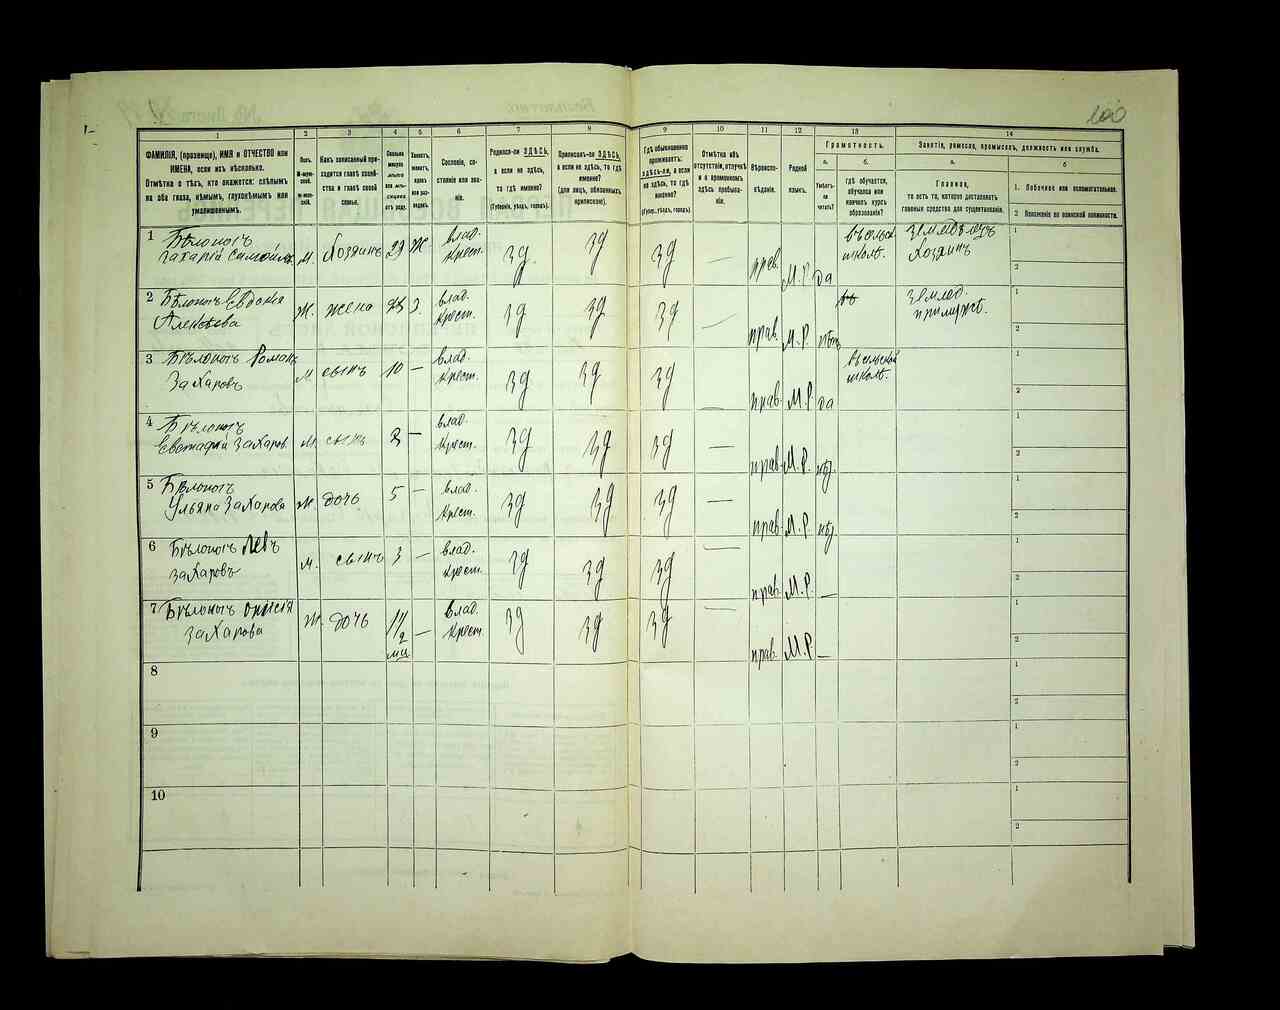 100
1 2 3 4 5 6 7 8 9 10 11 12 13 14
ФАМИЛІЯ, (прозвище), ИМЯ и ОТЧЕСТВО или
ИМЕНА, если ихъ нѣсколько.
Отмѣтка о тѣхъ, кто окажется: слѣпымъ
на оба глаза, нѣмымъ, глухонѣмымъ или
умалишеннымъ.
Полъ.
М-муж-
ской.
Ж-жен-
скій.
Какъ записанный при-
ходится главѣ хозяй-
ства и главѣ своей
семьи.
Сколько
минуло
лѣтъ
или мѣ-
сяцевъ
отъ роду.
Холостъ,
женатъ,
вдовъ
или раз-
веденъ.
Сословіе, со-
стояніе или зва-
ніе.
Родился-ли ЗДѢСЬ,
а если не здѣсь,
то гдѣ именно?
(Губернія, уѣздъ, городъ).
Приписанъ-ли ЗДѢСЬ,
а если не здѣсь, то гдѣ
именно?
(для лицъ, обязанныхъ
припискою).
Гдѣ обыкновенно
проживаетъ:
здѣсь-ли, а если
не здѣсь, то гдѣ
именно?
(Губерн., уѣздъ, городъ).
Отмѣтка объ
отсутствіи, отлучкѣ
и о временномъ
здѣсь пребыва-
ніи.
Вѣроиспо-
вѣданіе.
Родной
языкъ.
Грамотность.
а. б.
Умѣетъ-
ли
читать?
гдѣ обучается,
обучался или
кончилъ курсъ
образованія?
Занятіе, ремесло, промыселъ, должность или служба.
а. б
Главное,
то есть то, которое доставляетъ
главныя средства для существованія.
1. Побочное или вспомогательное.
2 Положеніе по воинской повинности.
1 Бѣлоногъ
Захарій Самойл. м. Хозяинъ 29 ж влад. крест. зд зд зд — прав. М.Р. да въ сельск. школѣ. земледѣлецъ хозяинъ 1 2
2 Бѣлоногъ Евдокія
Алексѣева ж. жена з. влад. крест. зд зд зд — прав. М.Р. нѣтъ землед. 1 2
3 Бѣлоногъ Романъ
Захаровъ м сынъ 10 — влад. крест. зд зд зд — прав. М.Р. да въ сельской школѣ. 1 2
4 Бѣлоногъ
Евстафій Захаров. м. сынъ 8 — влад. крест. зд зд зд — прав. М.Р. нѣт. 1 2
5 Бѣлоногъ
Ульяна Захарова ж. дочь 5 — влад. крест. зд зд зд — прав. М.Р. нѣт. 1 2
6 Бѣлоногъ Левъ
Захаровъ м. сынъ 3 — влад. крест. зд зд зд — прав. М.Р. — 1 2
7 Бѣлоногъ
Захарова ж. дочь — влад. крест. зд зд зд — прав. М.Р. — 1 2
8 1 2
9 1 2
10 1 2